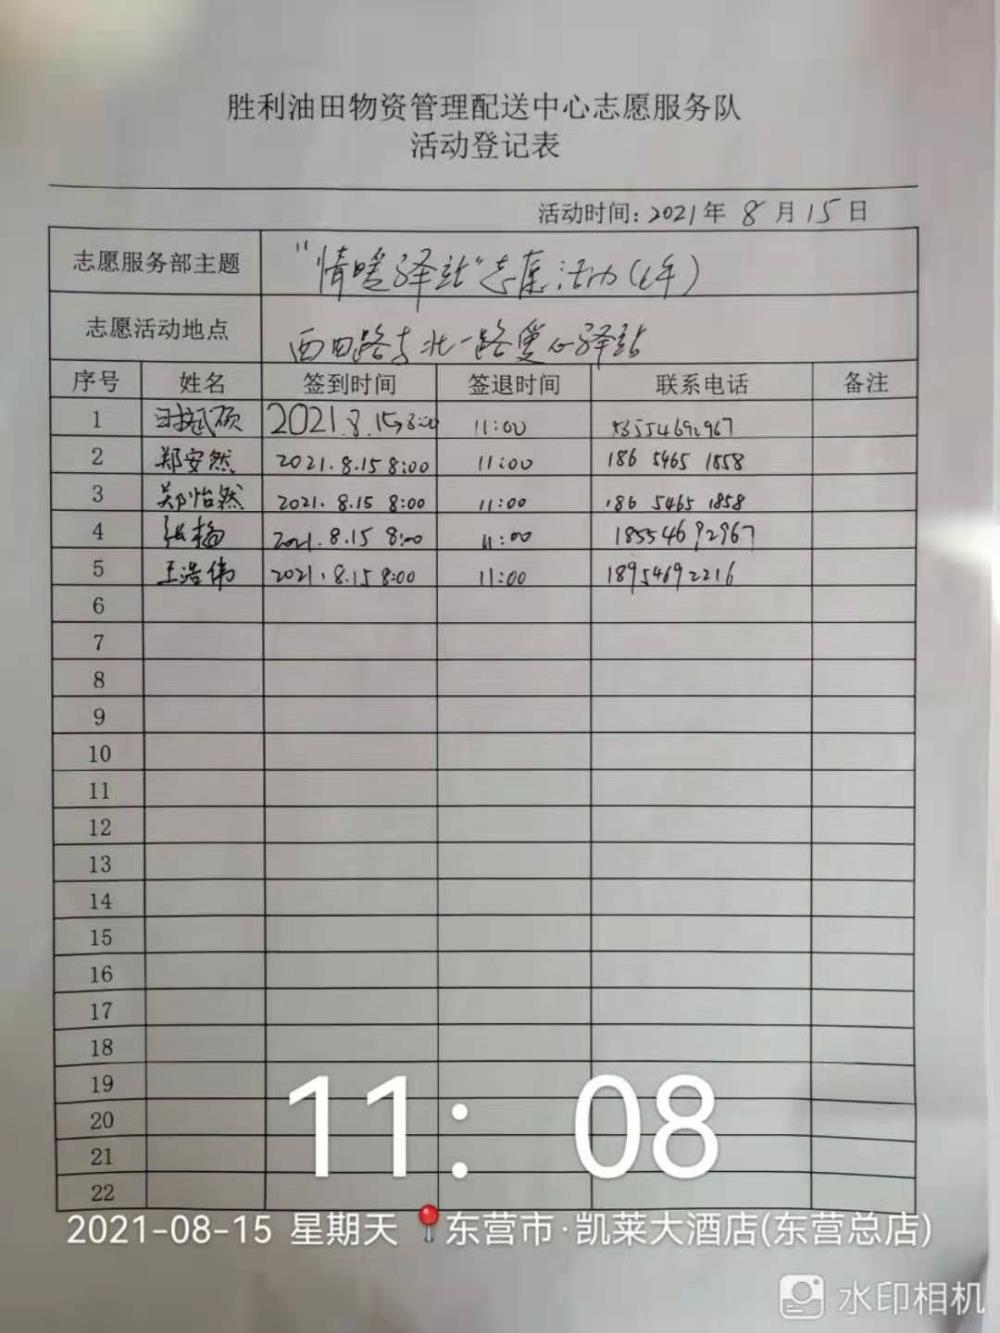 胜利油田物资管理配送中心志愿服务队
活动登记表
活动时间: 2021年 8月15日
志愿服务部主题 "情暖驿站"志愿活动(上午)
志愿活动地点 西四路与北一路爱心驿站
序号 姓名 签到时间 签退时间 联系电话 备注
1 2021.8.15 8:00 11:00 18554692967
2 郑安然 2021.8.15 8:00 11:00 186 5465 1858
3 郑怡然 2021.8.15 8:00 11:00 186 5465 1858
4 张梅 2021.8.15 8:00 11:00 18554692967
5 王浩伟 2021.8.15 8:00 11:00 18954692216
6
7
8
9
10
11
12
13
14
15
16
17
18
19
20
21
22
11: 08
2021-08-15 星期天 东营市·凯莱大酒店(东营总店)
水印相机